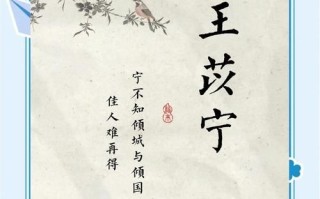 王苡宁
宁不知倾城与倾国
佳人难再得